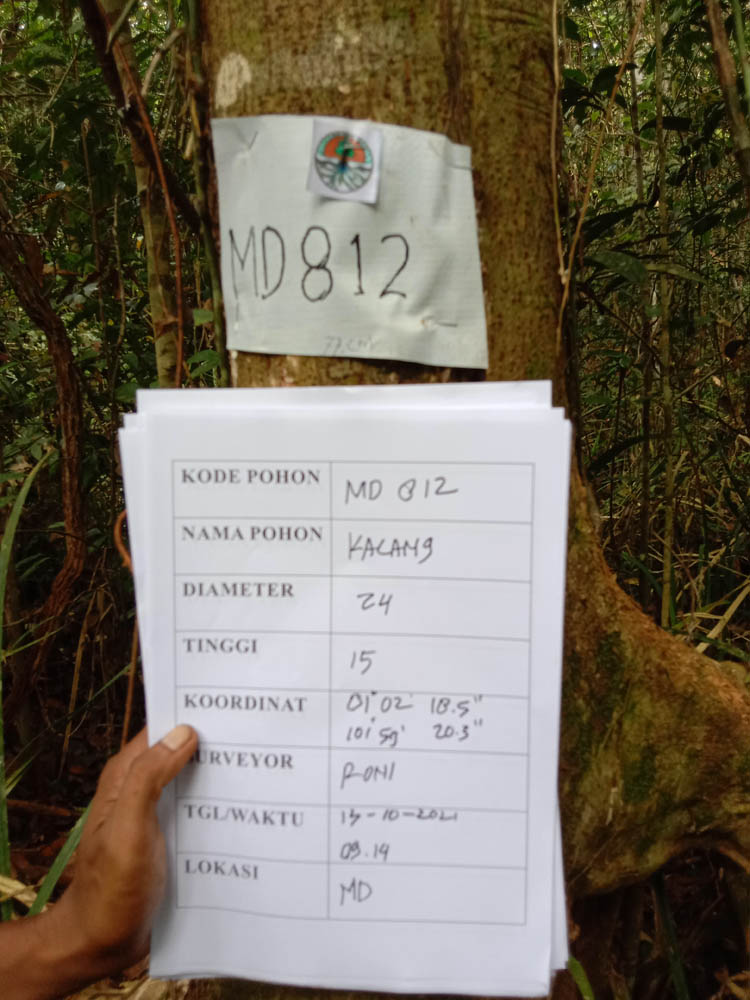 MD 812
77 cm
KODE POHON MD 812
NAMA POHON KACANG
DIAMETER 24
TINGGI 15
KOORDINAT 01° 02' 18.5"
101° 59' 20.3"
SURVEYOR RONI
TGL/WAKTU 13-10-2021
09.14
LOKASI MD